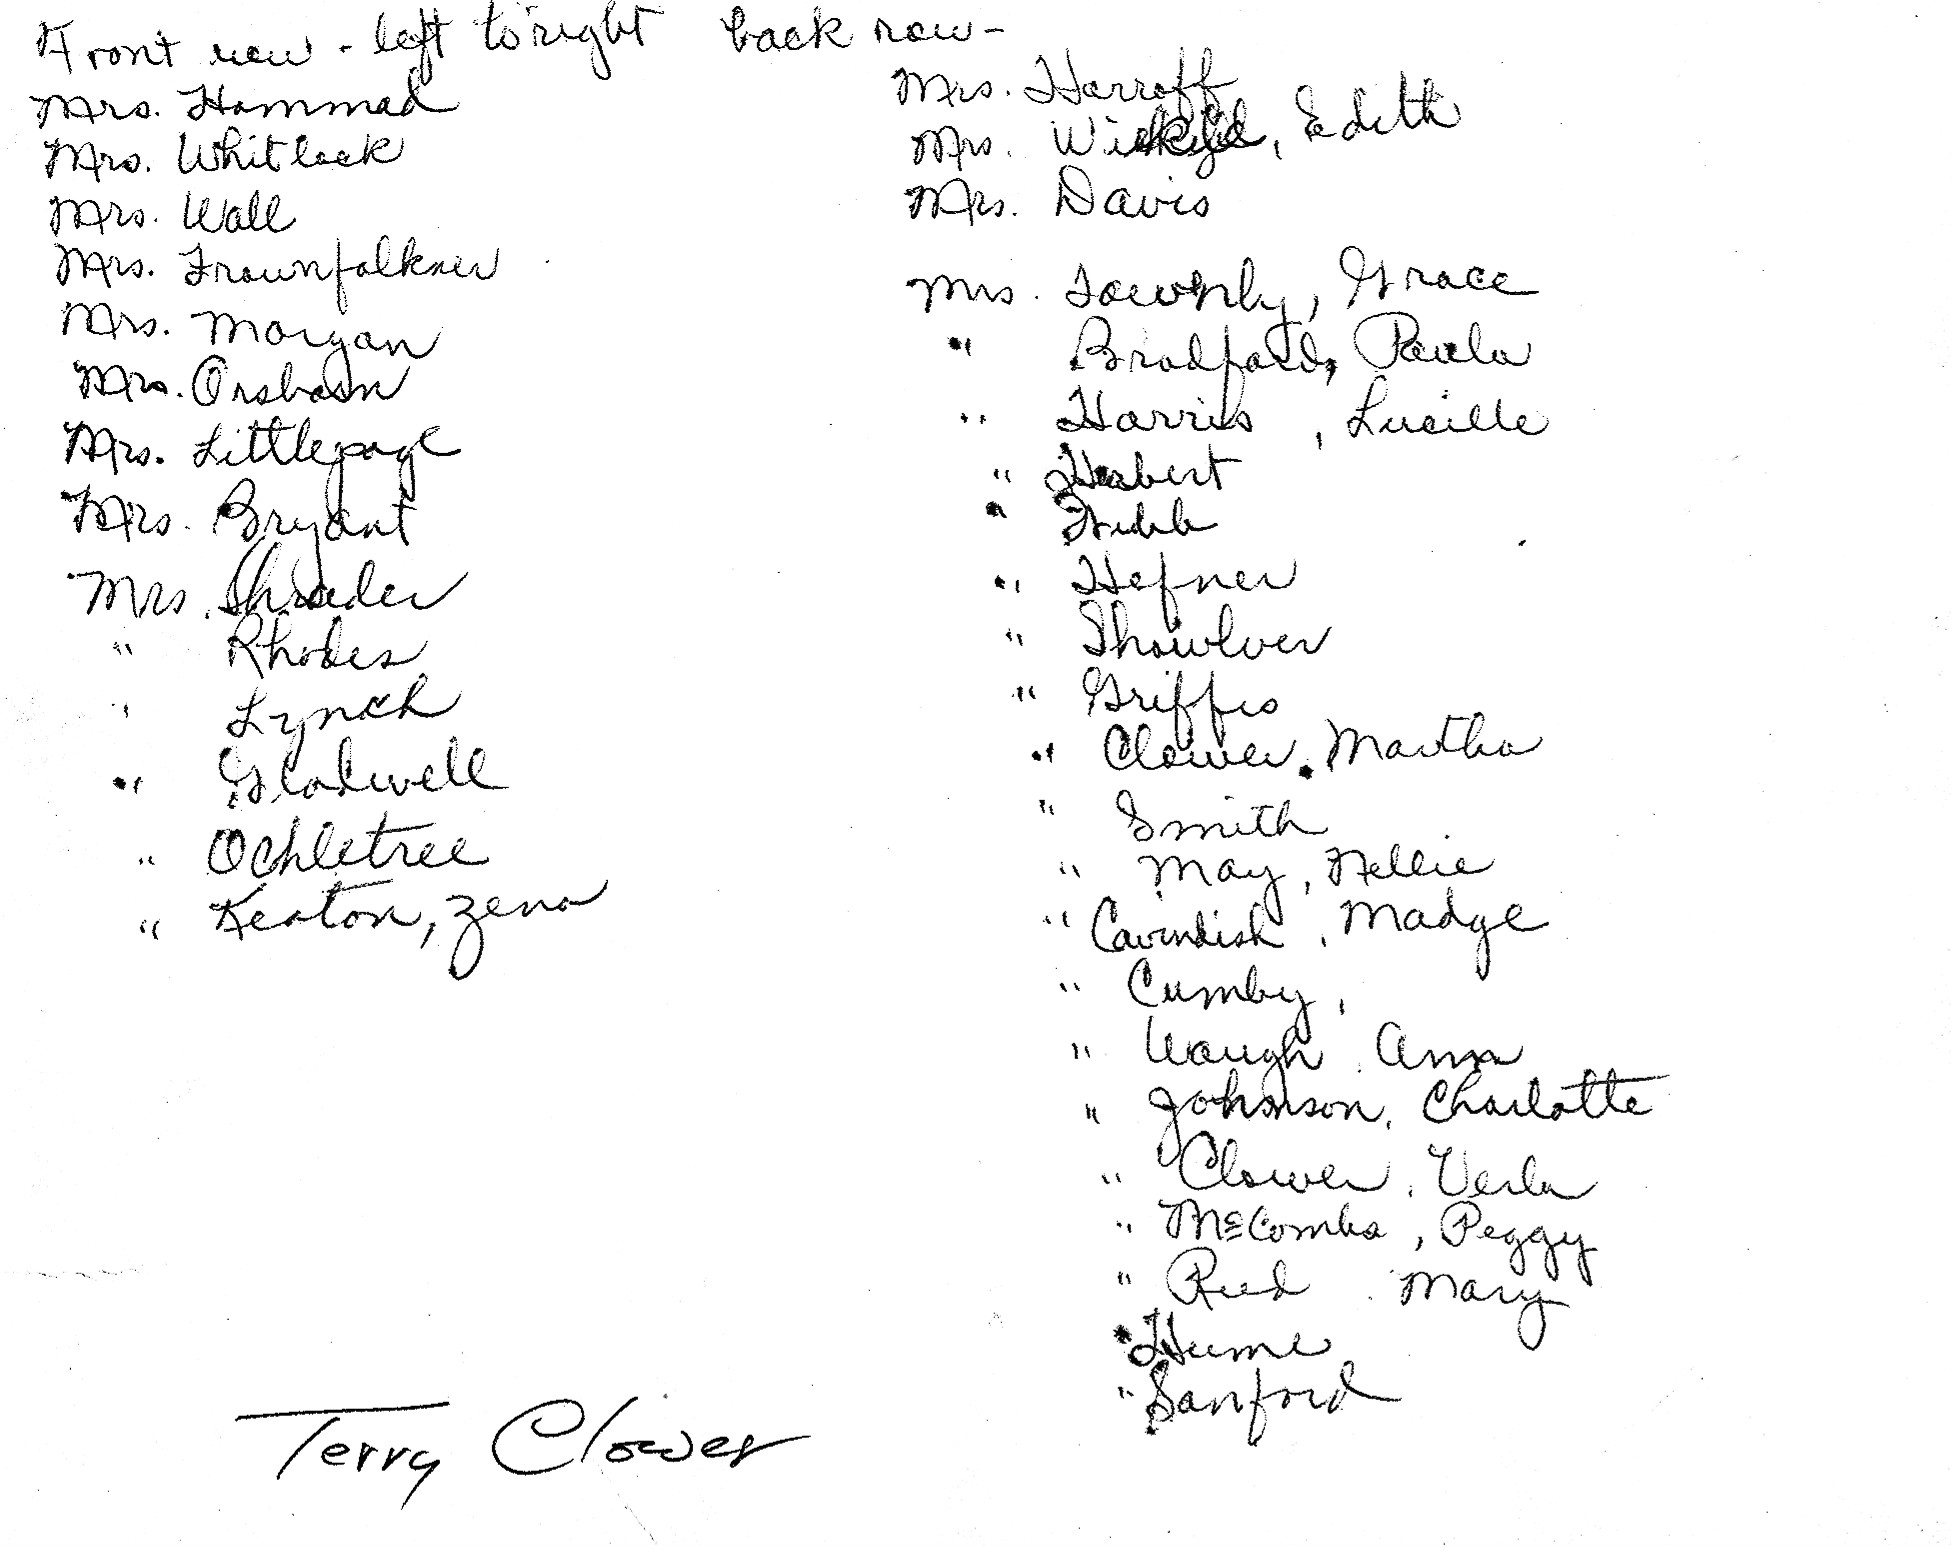 Front row - left to right
Mrs. Hammad
Mrs. Whitlock
Mrs. Wall
Mrs. Frownfalkner
Mrs. Morgan
Mrs. Orsbam
Mrs. Littlepage
Mrs. Bryant
Mrs. Shrader
" Rhodes
" Lynch
" Gladwell
" Ochletree
" Keaton, Zena
Terry Clower
back row -
Mrs. Harroff
Mrs. , Edith
Mrs. Davis
Mrs. Townly, Grace
" Bradford, Paula
" Harris, Lucille
" Hubert
"
" Hefner
" Showlver
" Griffis
" Clower, Martha
" Smith
" May, Nellie
" Cavindish, Madge
" Cumby,
" Waugh, Ann
" Johnson, Charlotte
" Clower, Verla
" McCombs, Peggy
" Reed, Mary
" Hume
" Sanford